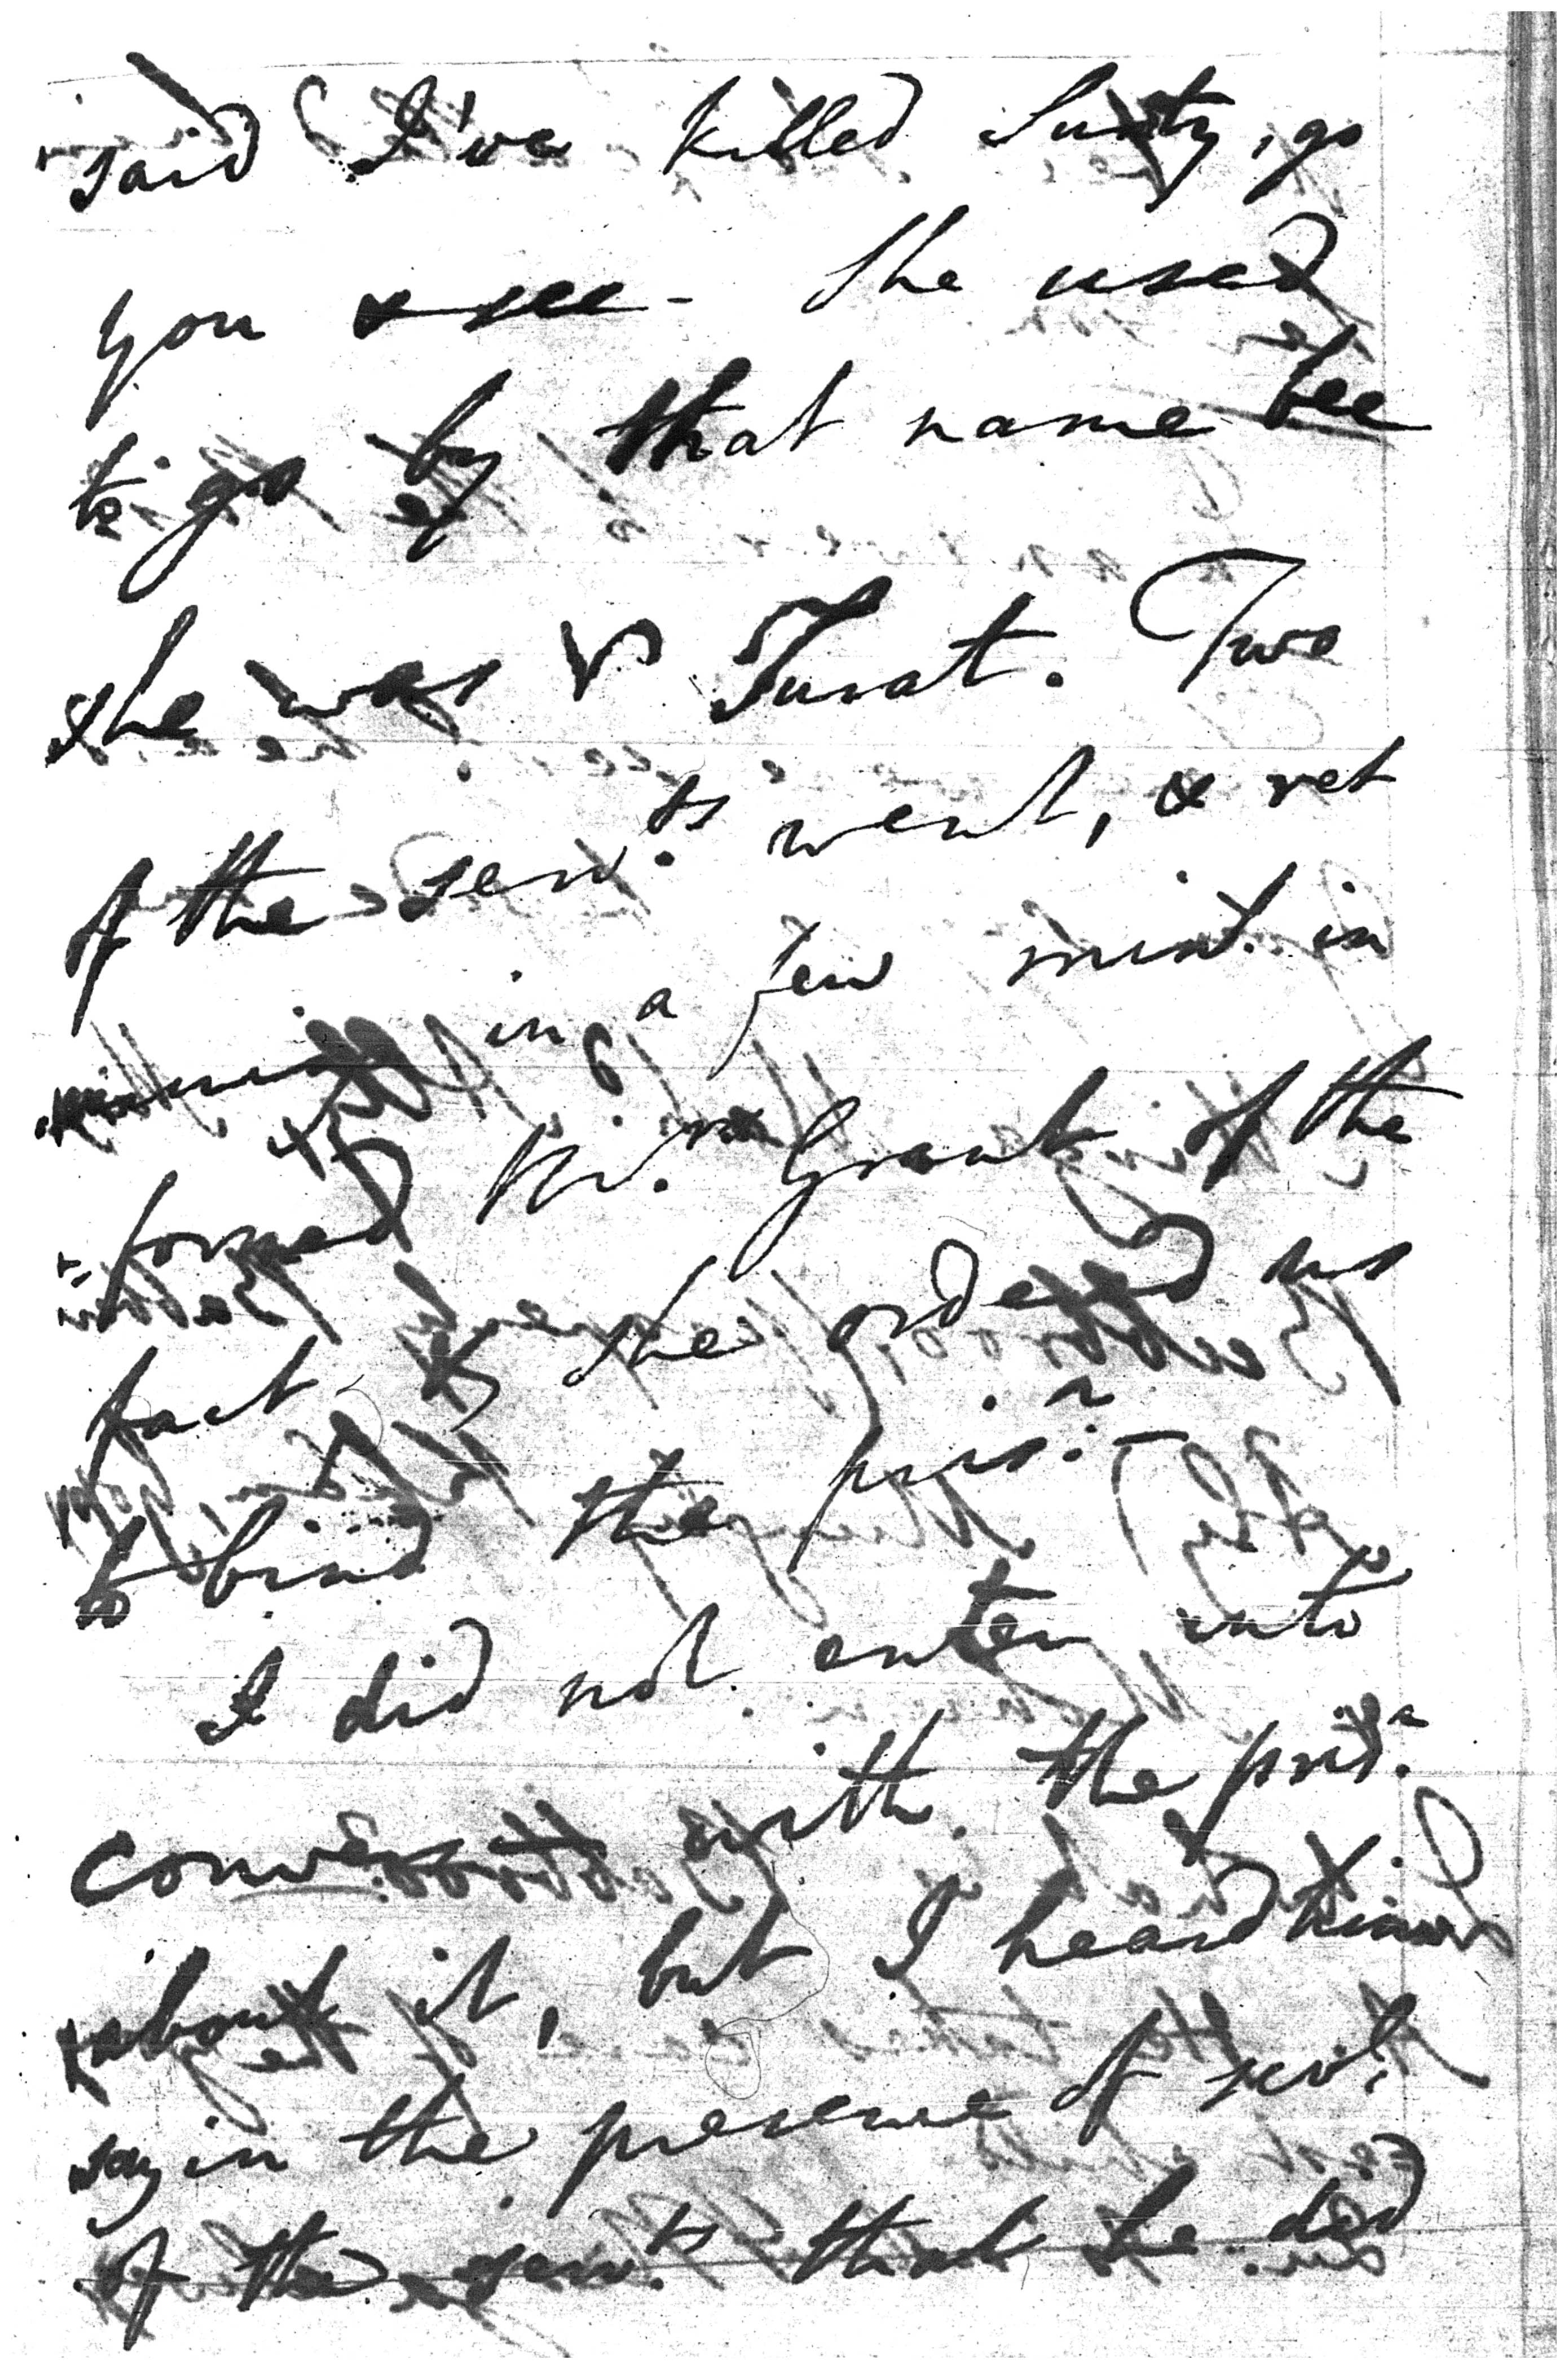 said I've killed Surty, go
you & see - She used
to go by that name bec
she was fr Surat. Two
of the servts went, & ret
in a few mint. in
formed Mrs Grant of the
fact & she ordered us
to bind the prisr -
I did not enter into
convers with the prisr
about it, but I heard him
say in the presence of sevl
of the servts that he did